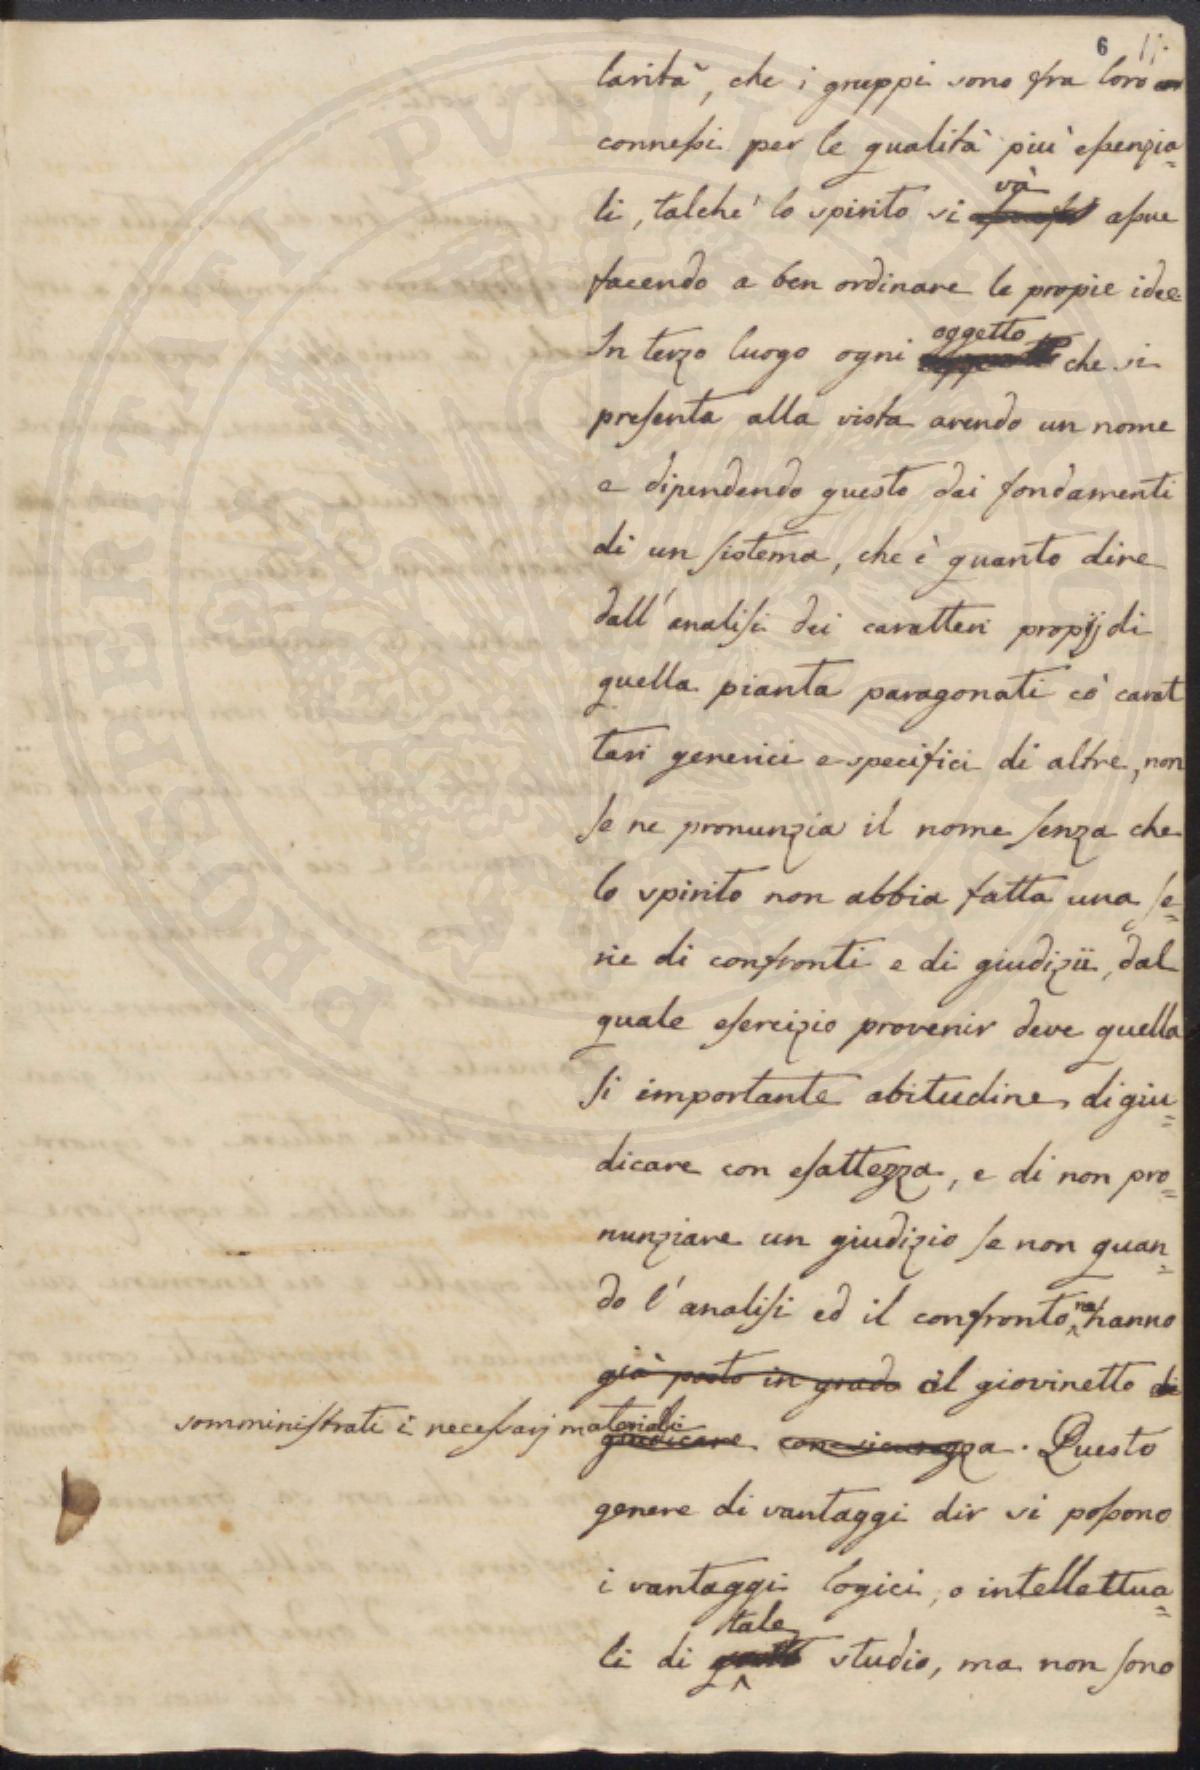 6 11.
larità, che i gruppi sono fra loro
connessi per le qualità più essenzia=
li, talchè lo spirito si và assue
facendo a ben ordinare le propie idee.
In terzo luogo ogni oggetto che si
presenta alla vista avendo un nome
e dipendendo questo dai fondamenti
di un sistema, che è quanto dire
dall'analisi dei caratteri propij di
quella pianta paragonati có carat
teri generici e specifici di altre, non
se ne pronunzia il nome senza che
lo spirito non abbia fatta una se=
rie di confronti e di giudizii, dal
quale esercizio provenir deve quella
si importante abitudine di giu=
dicare con esattezza, e di non pro=
nunziare un giudizio se non quan=
do l'analisi ed il confronto ne hanno
già posto in grado al giovinetto di
somministrati i necessarj materiali
giudicare con sicurezza. Questo
genere di vantaggi dir si possono
i vantaggi logici, o intellettua=
li di tale studio, ma non sono
PROSPERITATI PVBLICAE